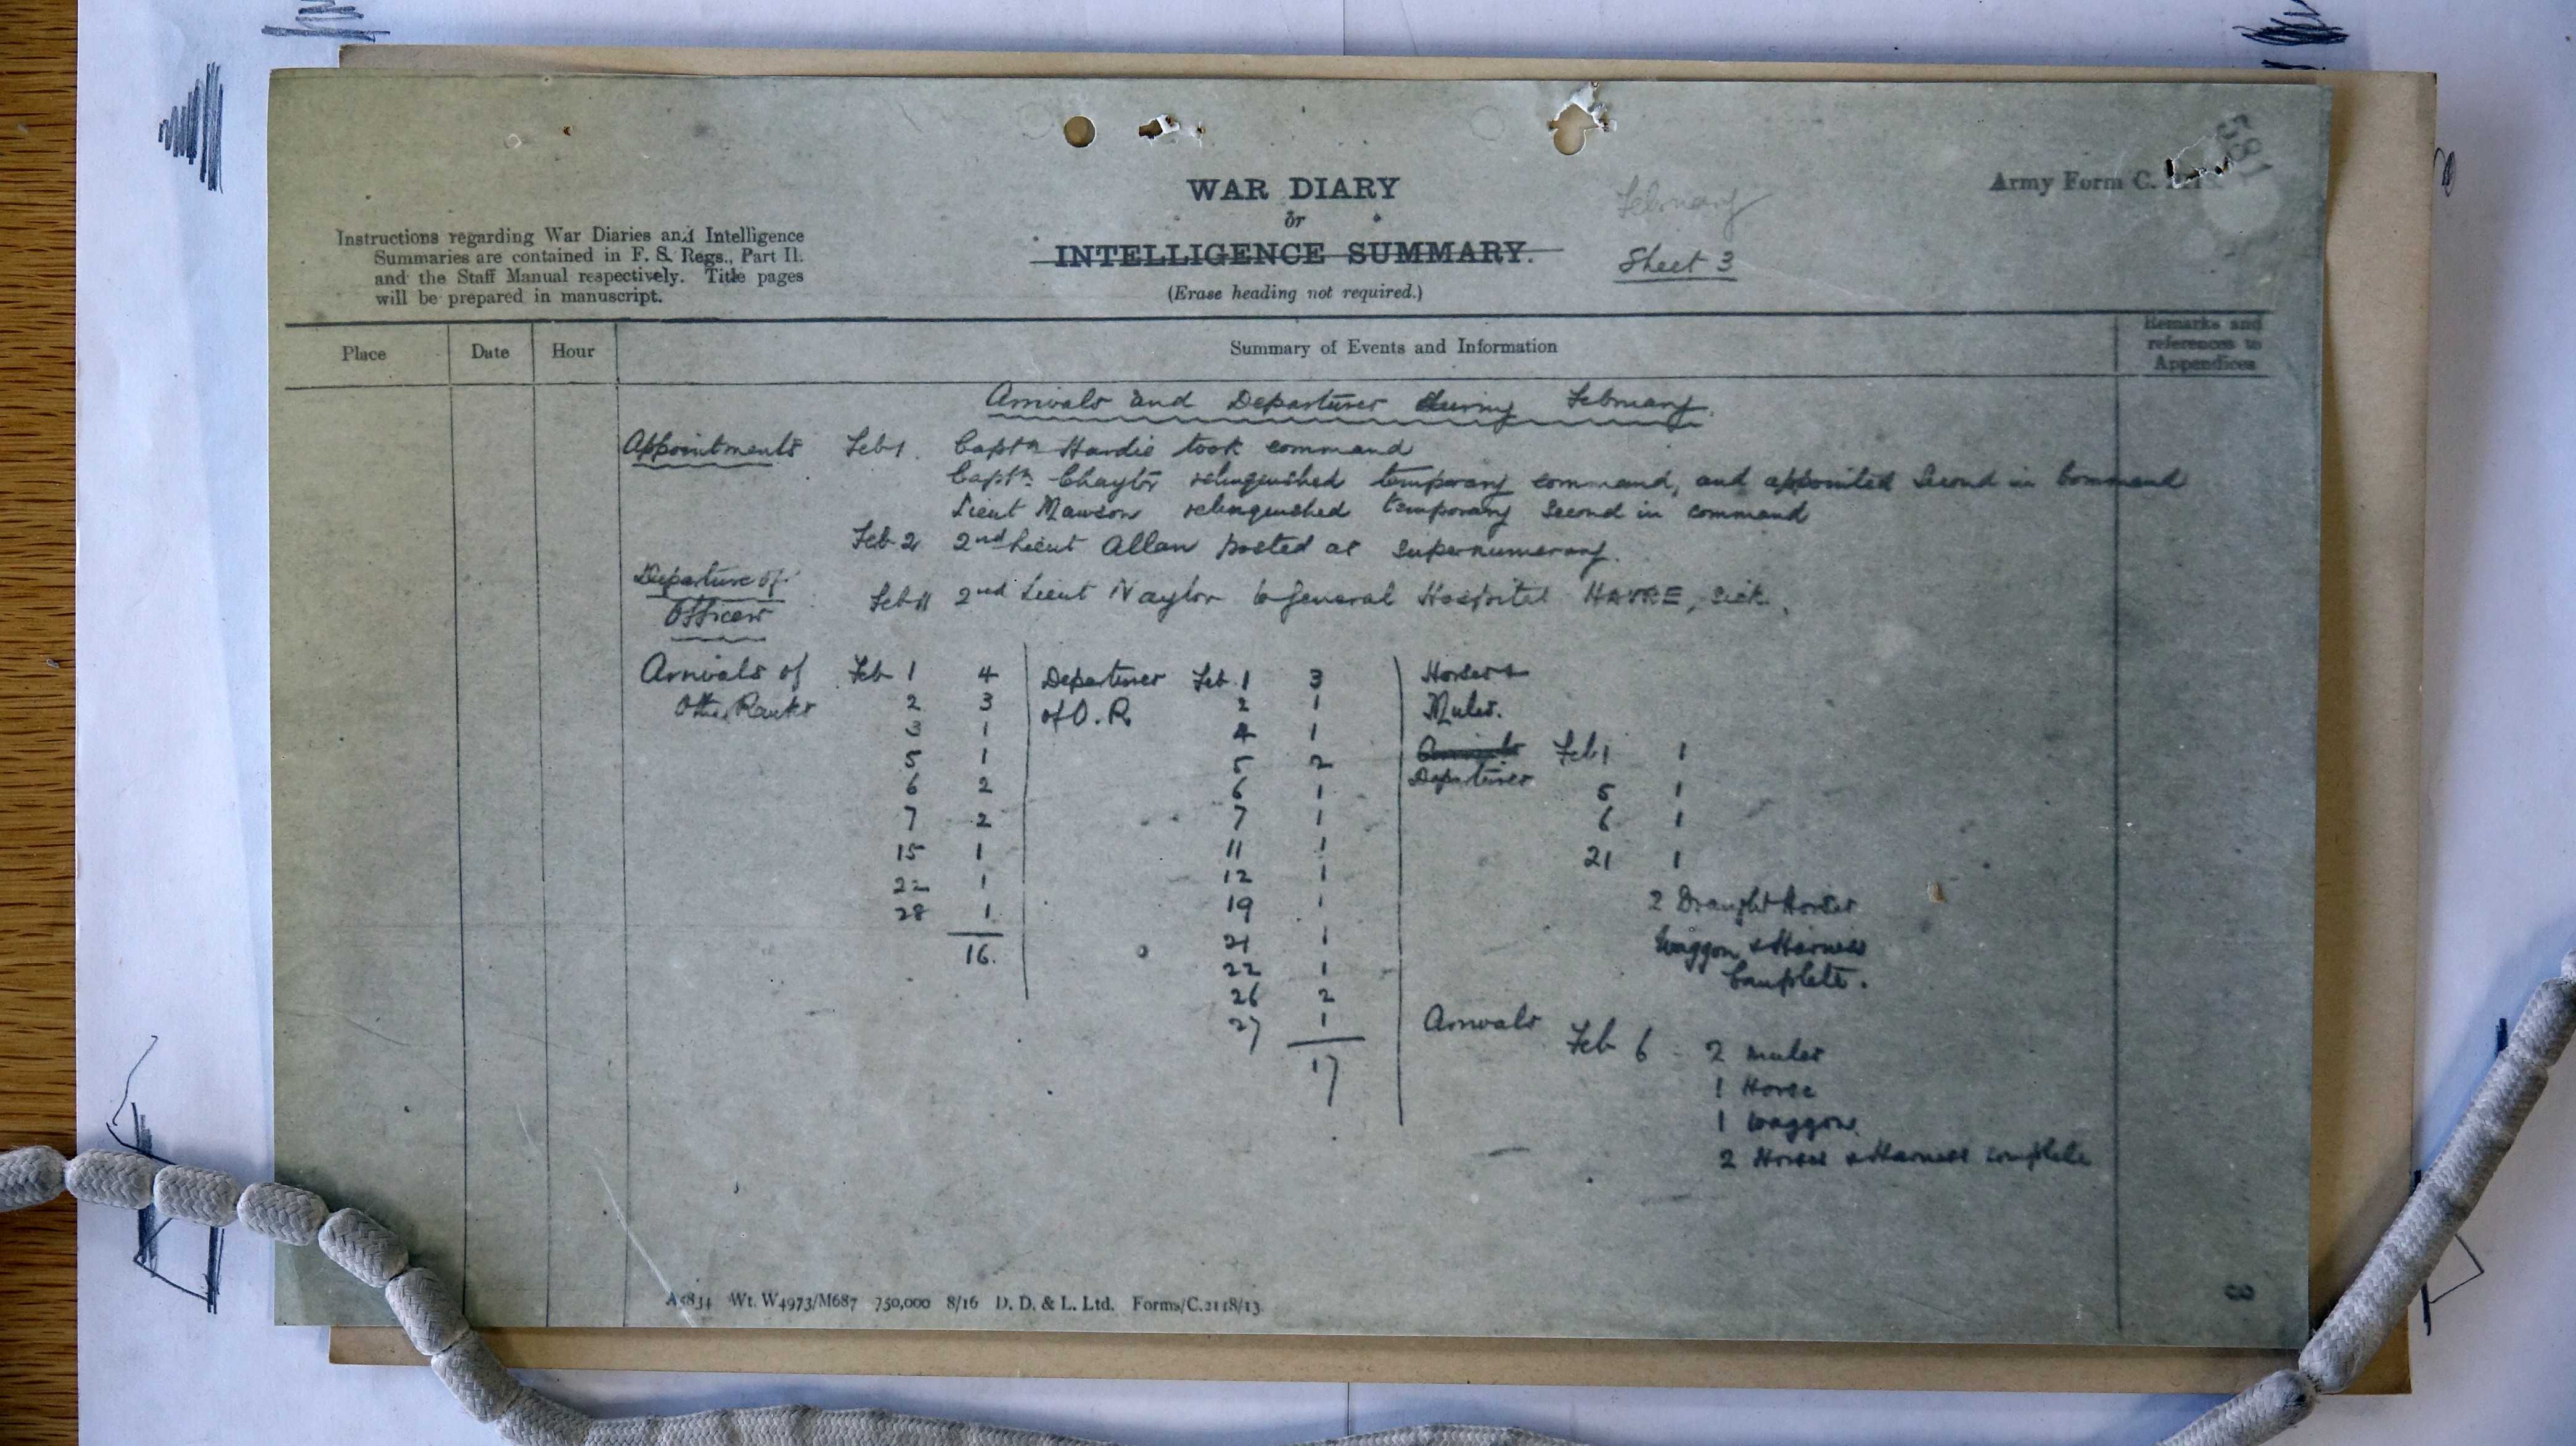 WAR DIARY
or
INTELLIGENCE SUMMARY.
(Erase heading not required.)
February
Sheet 3
Army Form C.
581
Instructions regarding War Diaries and Intelligence
Summaries are contained in F. S. Regs., Part II.
and the Staff Manual respectively. Title pages
will be prepared in manuscript.
Place Date Hour Summary of Events and Information Remarks and references to Appendices
Arrivals and Departures during February.
Appointments Feb 1. Captn Hardie took command
Captn. Chaytor relinquished temporary command, and appointed Second in Command
Lieut Mawson relinquished temporary Second in command
Feb 2 2nd Lieut Allan posted as supernumerary.
Departure of Officers
Feb 11 2nd Lieut Naylor to General Hospital HAVRE, sick.
Arrivals of Other Ranks
Feb 1 4
2 3
3 1
5 1
6 2
7 2
15 1
22 1
28 1
16.
Departures of O.R.
Feb 1 3
2 1
4 1
5 2
6 1
7 1
11 1
12 1
19 1
21 1
22 1
26 2
27 1
17
Horses +
Mules.
Arrivals
Departures
Feb 1 1
5 1
6 1
21 1
2 Draught Horses
Waggon & Harness
Complete.
Arrivals
Feb 6 2 mules
1 Horse
1 Waggon
2 Horses & Harness complete
A5834 Wt. W4973/M687 750,000 8/16 D. D. & L. Ltd. Forms/C.2118/13